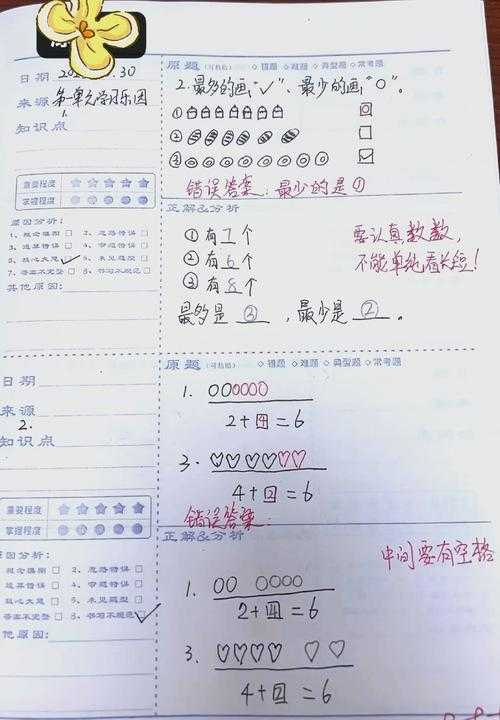 日期 .30
来源 第一单元学习乐园
1.
知识点
重要程度
掌握程度
原因分析：
1、概念模糊 2、思路错误
3、运算错误 4、审题错误
5、粗心大意 6、未见题型
7、答案不完整 8、书写不规范
其他原因：
原题（可粘贴） 错题 难题 典型题 常考题
2.最多的画“✓”、最少的画“○”。
①
②
③
错误答案：最少的是①
正解&分析
①有7个
②有6个
③有8个
最多是③，最少是②。
要认真数数，
不能单纯看长短！
日期
来源
2.
知识点
重要程度
掌握程度
原因分析：
概念模糊 2、思路错误
运算错误 4、审题错误
粗心大意 6、未见题型
答案不完整 8、书写不规范
他原因：
原题（可粘贴） 错题 难题 典型题 常考题
1.
2+4=6
3.
4+2=6
错误答案：
正解&分析
中间要有空格
1.
2+4=6
3.
4+2=6